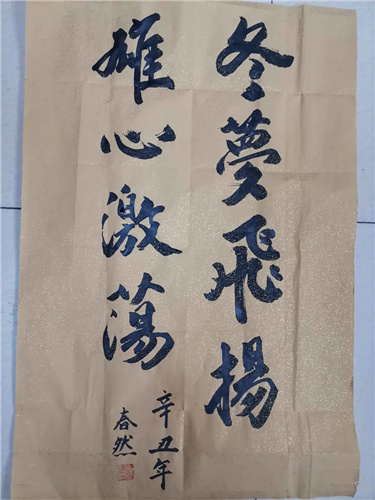 冬夢飛揚
雄心激荡
辛丑年
春然